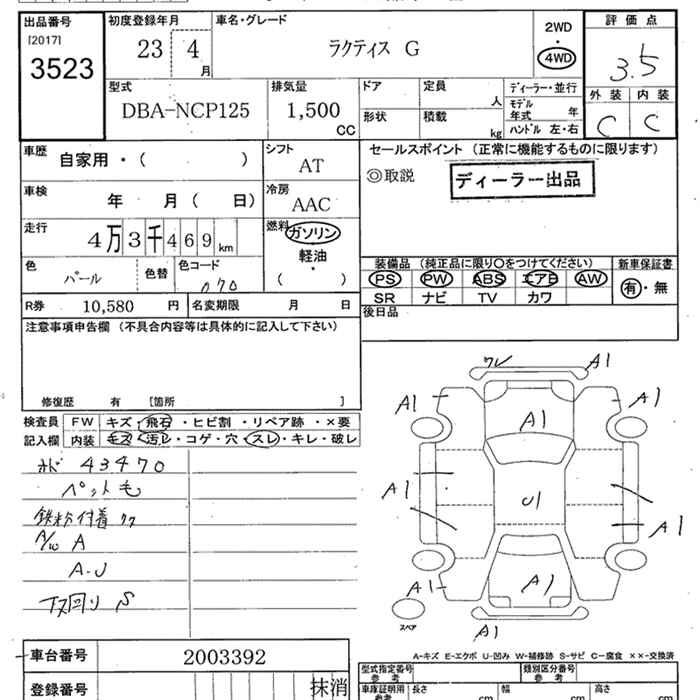 出品番号 初度登録年月 車名・グレード 評価点
[2017] 23 4 月 ラクティス G 2WD
3523 ・
4WD 3.5
型式 排気量 ドア 定員 人 ディーラー・並行 外装 内装
DBA-NCP125 1,500 CC 形状 積載 kg モデル年式 年 C C
ハンドル 左・右
車歴 自家用・( ) シフト AT セールスポイント (正常に機能するものに限ります)
◎取説 ディーラー出品
車検 年 月( 日) 冷房 AAC
走行 4万3千469km 燃料 ガソリン
軽油
・
( )
色 パール 色替 色コード 070
装備品 (純正品に限り○をつけてください) 新車保証書
PS PW ABS エアB AW 有・無
SR ナビ TV カワ
R券 10,580 円 名変期限 月 日 後日品
注意事項申告欄 (不具合内容等は具体的に記入して下さい)
修復歴 有 [箇所 ]
検査員 FW キズ・飛石・ヒビ割・リペア跡・×要
記入欄 内装 キズ・汚レ・コゲ・穴・スレ・キレ・破レ
オド 43470
ペット毛
鉄粉付着
A/W A
A-U
下回り S
ワレ A1
A1 A1 A1
A1 U1 A1
A1 A1
スペア A1
A-キズ E-エクボ U-凹み W-補修跡 S-サビ C-腐食 ××-交換済
車台番号 2003392
登録番号 抹消
型式指定番号 参考 類別区分番号 参考
車庫証明用 参考 長さ cm 幅 cm 高さ cm